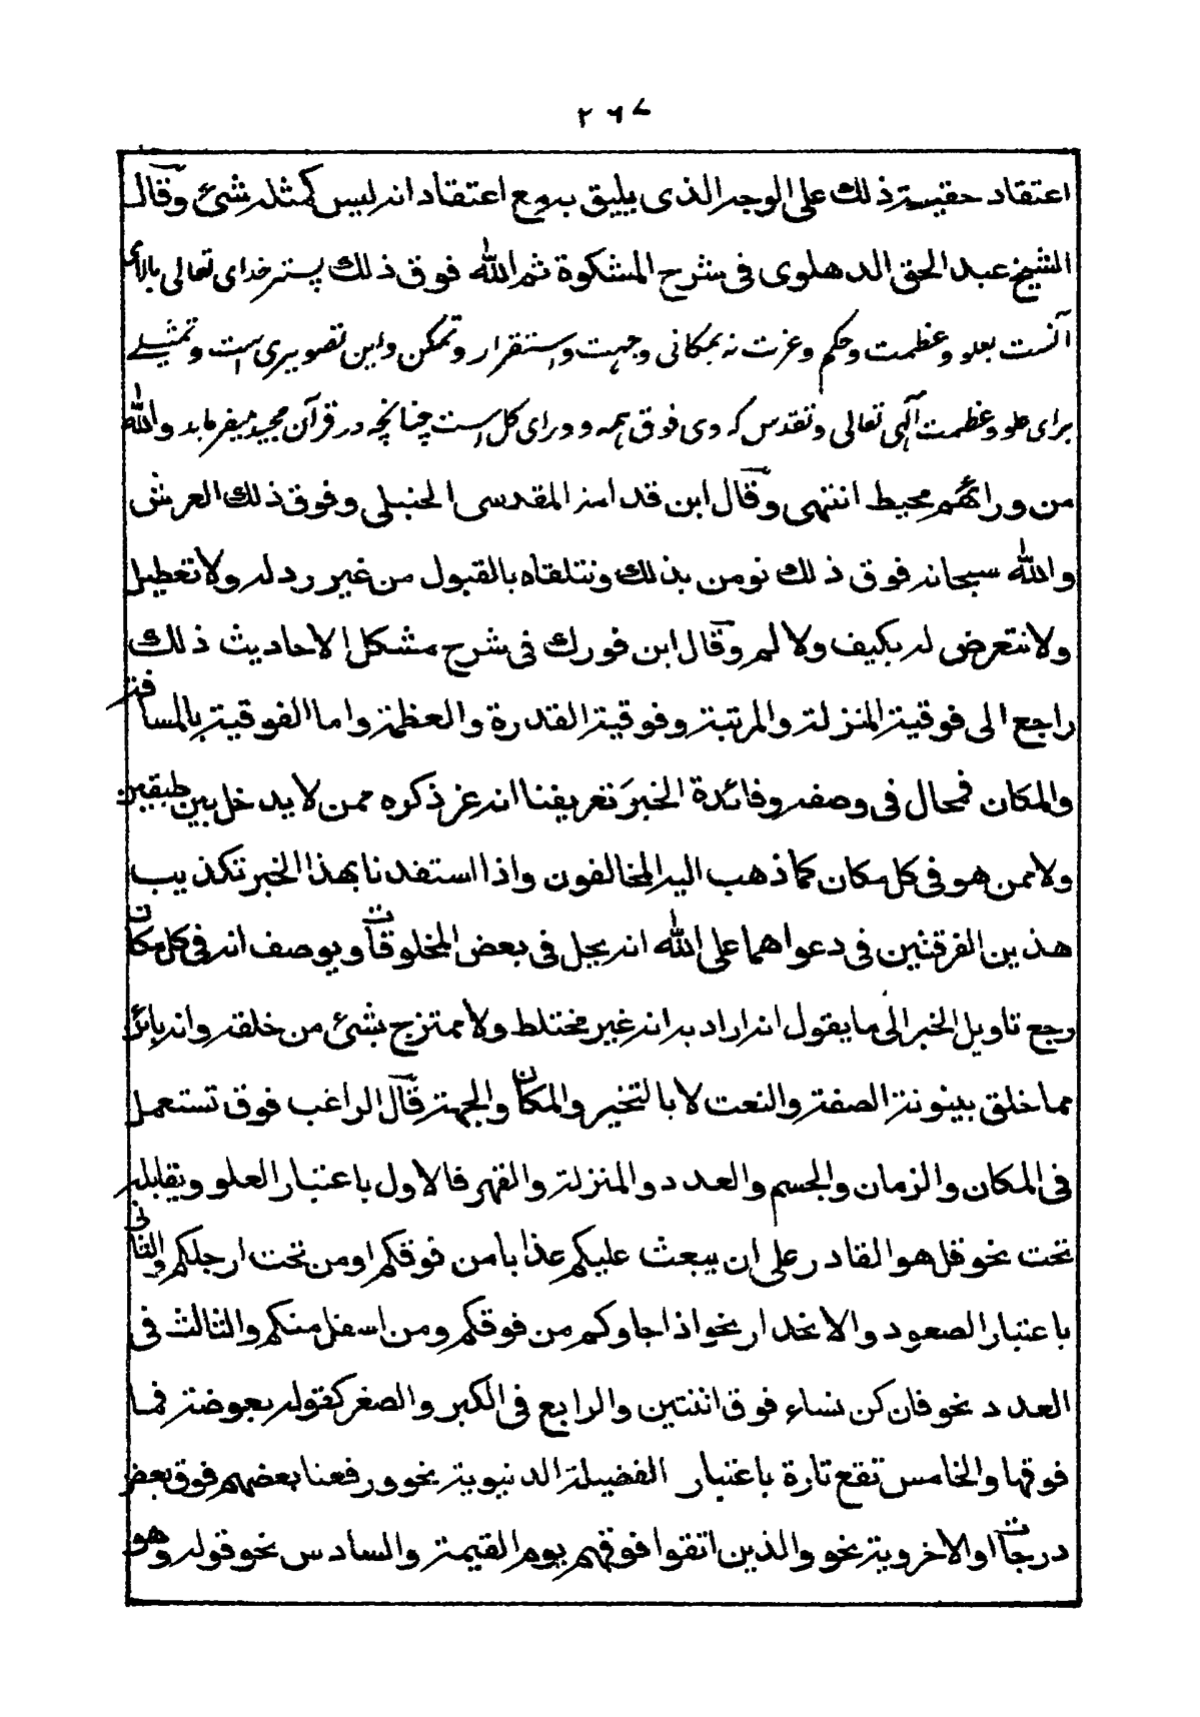 ۲۶۷
اعتقاد حقيـة ذلك على الوجه الذى يليق به مع اعتقاد انه ليس كمثله شئ وقال
الشيخ عبد الحق الدهلوى فى شرح المشكوة ثم الله فوق ذلك پستر خداى تعالى بالاى
آنست بعلو و عظمت و حكم و عزت نه بمكانى و جهت و استقرار و تمكن و اين تصويرى است و تمثيلے
براى علو و عظمت آلهى تعالى و تقدس كه وى فوق همه و وراى كل است چنانچه در قرآن مجيد ميفرمايد والله
من ورائهم محيط انتهى وقال ابن قدامة المقدسى الحنبلى وفوق ذلك العرش
والله سبحانه فوق ذلك نومن بذلك ونتلقاه بالقبول من غير رد له ولا تعطيل
ولا نتعرض له بكيف ولا لم وقال ابن فورك فى شرح مشكل الاحاديث ذلك
راجع الى فوقية المنزلة والمرتبة وفوقية القدرة والعظمة واما الفوقية بالمسافة
والمكان فمحال فى وصفه وفائدة الخبر تعريفنا انه عز ذكره ممن لا يدخل بين طبقين
ولا ممن هو فى كل مكان كما ذهب اليه المخالفون واذا استفدنا بهذا الخبر تكذيب
هذين الفرقتين فى دعواهما على الله انه يحل فى بعض المخلوقات ويوصف انه فى كل مكان
رجع تاويل الخبر الى ما يقول انه اراد به انه غير مختلط ولا ممتزج بشئ من خلقه وانه بائن
مما خلق بينونة الصفة والنعت لا بالتخير والمكان والجهة قال الراغب فوق تستعمل
فى المكان والزمان والجسم والعدد والمنزلة والقهر فالاول باعتبار العلو ويقابله
تحت نحو قل هو القادر على ان يبعث عليكم عذابا من فوقكم او من تحت ارجلكم والثانى
باعتبار الصعود والانحدار نحو اذ اجاوكم من فوقكم ومن اسفل منكم والثالث فى
العدد نحو فان كن نساء فوق اثنتين والرابع فى الكبر والصغر كقوله بعوضة فما
فوقها والخامس تقع تارة باعتبار الفضيلة الدنيوية نحو ورفعنا بعضهم فوق بعض
درجات او الاخروية نحو والذين اتقوا فوقهم يوم القيمة والسادس نحو قوله وهو